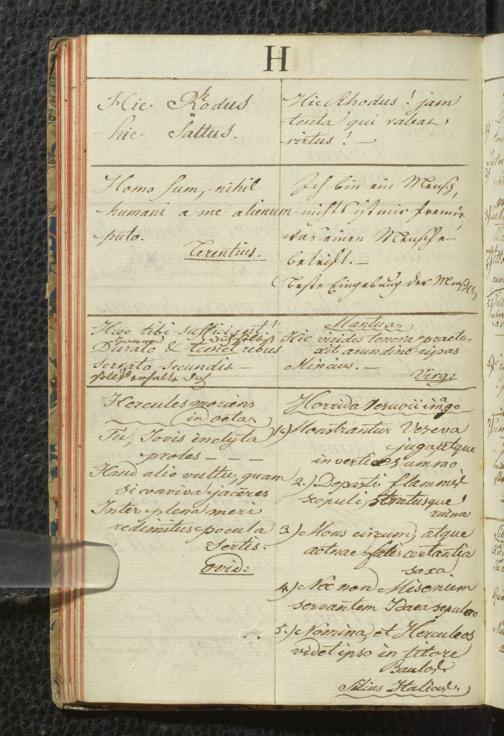 H
Hic Rhodus
hic Saltus.
Hic Rhodus! jam
tenta qui valeat
virtus! —
Homo sum, nihil
humani a me alienum
puto.
Terentius.
Ich bin ein Mensch,
nichts ist mir fremd
was einen Menschen
betrifft. —
Haec tibi sufficient!
Durato &
servato secundis —
Mantua
Hic virides tenera praete-
xit arundine ripas
Mincius. —
Virg:
Hercules moriens
in oeta
Tu, Jovis inclyta
proles — — —
Haud alio vultu, quam
si conviva jaceres
Inter plena meri
redimitus pocula
Sertis.
Ovid:
Horrida Vesuvii imago
1.) Monstrantur Veseva
juga, atque
in vertice summo
2.) Depasti flammis
scopuli, stratusque
ruina
3.) Mons circum, atque
aetnae fatis certantia
saxa,
4.) Nec non Misenum
servantem Idaea sepulcro
5.) Nomina, et Herculeos
videt ipso in litore
Baulos.
Silius Italicus.